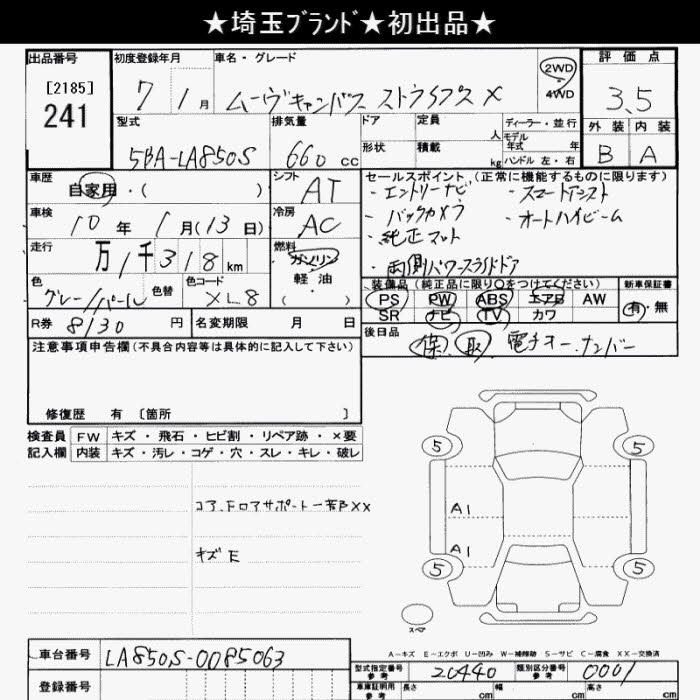 ★埼玉ﾌﾞﾗﾝﾄﾞ★初出品★
出品番号 初度登録年月 車名・グレード 評価点
[2185]
241
7 1月 ムーヴキャンバス ストライプス X 2WD・4WD 3.5
型式 排気量 ドア 定員 人 ディーラー・並行
モデル年式 年
外装 内装
5BA-LA850S 660 cc 形状 積載 kg ハンドル 左・右 B A
車歴 シフト セールスポイント (正常に機能するものに限ります)
自家用・( ) AT ・エントリーナビ ・スマートアシスト
車検 冷房 ・バックカメラ ・オートハイビーム
10年1月(13日) AC ・純正マット
走行 燃料 ・両側パワースライドドア
万1千318km ガソリン 軽油 ( )
色 色替 色コード
グレー/パール XL8
装備品 (純正品に限り○をつけてください) 新車保証書
PS PW ABS エアB AW 有・無
SR ナビ TV カワ
R券 8130円 名変期限 月 日
後日品 保 取 電子オーナンバー
注意事項申告欄(不具合内容等は具体的に記入して下さい)
修復歴 有 〔箇所 〕
検査員 FW キズ・飛石・ヒビ割・リペア跡・×要
記入欄 内装 キズ・汚レ・コゲ・穴・スレ・キレ・破レ
コア.ドロアサポート一部XX
キズE
5 5
A1
A1
5 5
スペア
A-キズ E-エクボ U-凹み W-補修跡 S-サビ C-腐食 XX-交換済
車台番号 LA850S-0085063
型式指定番号 参考 20440 類別区分番号 参考 0001
登録番号 車庫証明用 参考 長さ cm 幅 cm 高さ cm